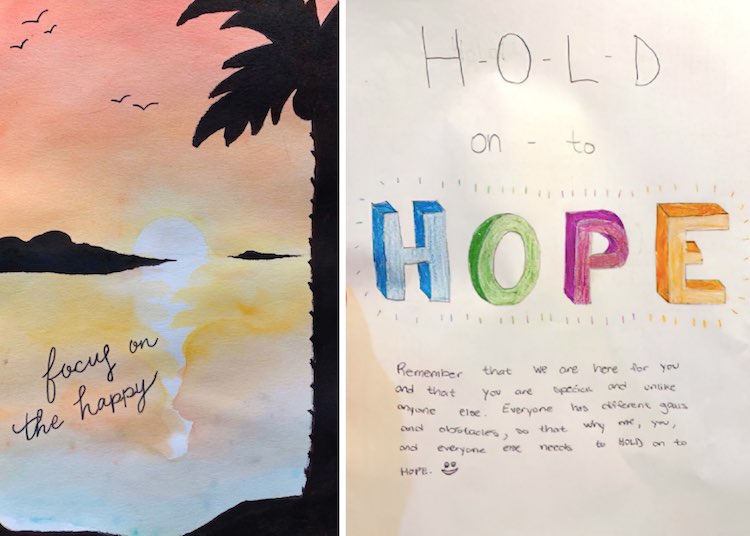 focus on
the happy
H-O-L-D
on - to
HOPE
Remember that we are here for you
and that you are special and unlike
anyone else. Everyone has different goals
and obstacles, so that why me, you,
and everyone else needs to HOLD on to
HOPE.